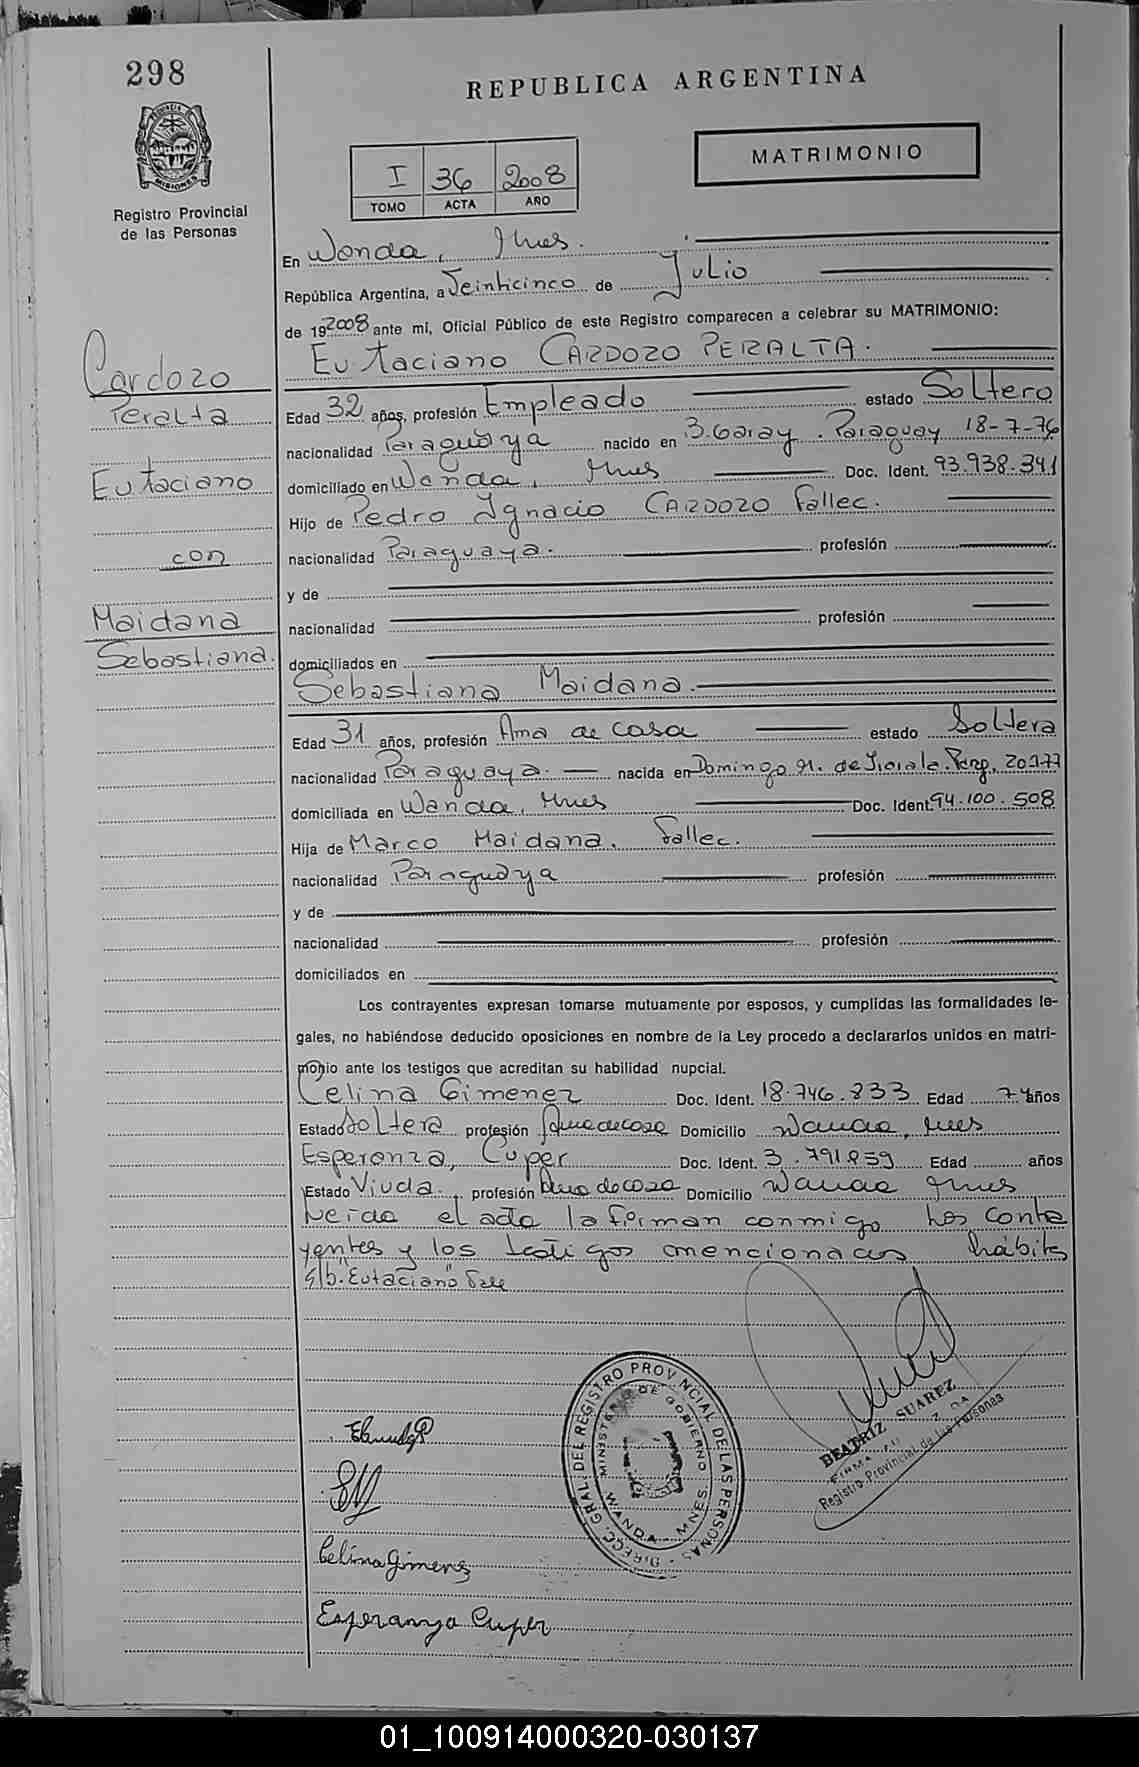 298
REPUBLICA ARGENTINA
PROVINCIA DE MISIONES
Registro Provincial
de las Personas
MATRIMONIO
I 36 2008
TOMO ACTA AÑO
En Wanda, Mnes.
República Argentina, a Veinticinco de Julio
de 19 2008 ante mi, Oficial Público de este Registro comparecen a celebrar su MATRIMONIO:
Eutaciano CARDOZO PERALTA.
Cardozo
Peralta
Eutaciano
con
Maidana
Sebastiana.
Edad 32 años, profesión Empleado estado Soltero
nacionalidad Paraguaya nacido en 3. Garay. Paraguay 18-7-76
domiciliado en Wanda, Mnes Doc. Ident. 93.938.341
Hijo de Pedro Ignacio CARDOZO Fallec.
nacionalidad Paraguaya. profesión
y de
nacionalidad profesión
domiciliados en
Sebastiana Maidana.
Edad 31 años, profesión Ama de casa estado Soltera
nacionalidad Paraguaya. nacida en Domingo M. de
domiciliada en Wanda, Mnes Doc. Ident. 94.100.508
Hija de Marco Maidana. Fallec.
nacionalidad Paraguaya profesión
y de
nacionalidad profesión
domiciliados en
Los contrayentes expresan tomarse mutuamente por esposos, y cumplidas las formalidades le-
gales, no habiéndose deducido oposiciones en nombre de la Ley procedo a declararlos unidos en matri-
monio ante los testigos que acreditan su habilidad nupcial.
Celina Gimenez Doc. Ident. 18.746.833 Edad 74 años
Estado Soltera profesión Ama de casa Domicilio Wanda, Mnes
Esperanza, Cuper Doc. Ident. 3.791.859 Edad años
Estado Viuda. profesión Ama de casa Domicilio Wanda Mnes
Leida el acta la firman conmigo los contra
yentes y los testigos mencionados hábiles
S/b. "Eutaciano" Vale
DIRECC. GRAL. DEL REGISTRO PROVINCIAL DE LAS PERSONAS
MINISTERIO DE GOBIERNO
WANDA - MNES.
BEATRIZ SUAREZ
Registro Provincial de las Personas
Celina Gimenes
Esperanza Cuper
01_100914000320-030137